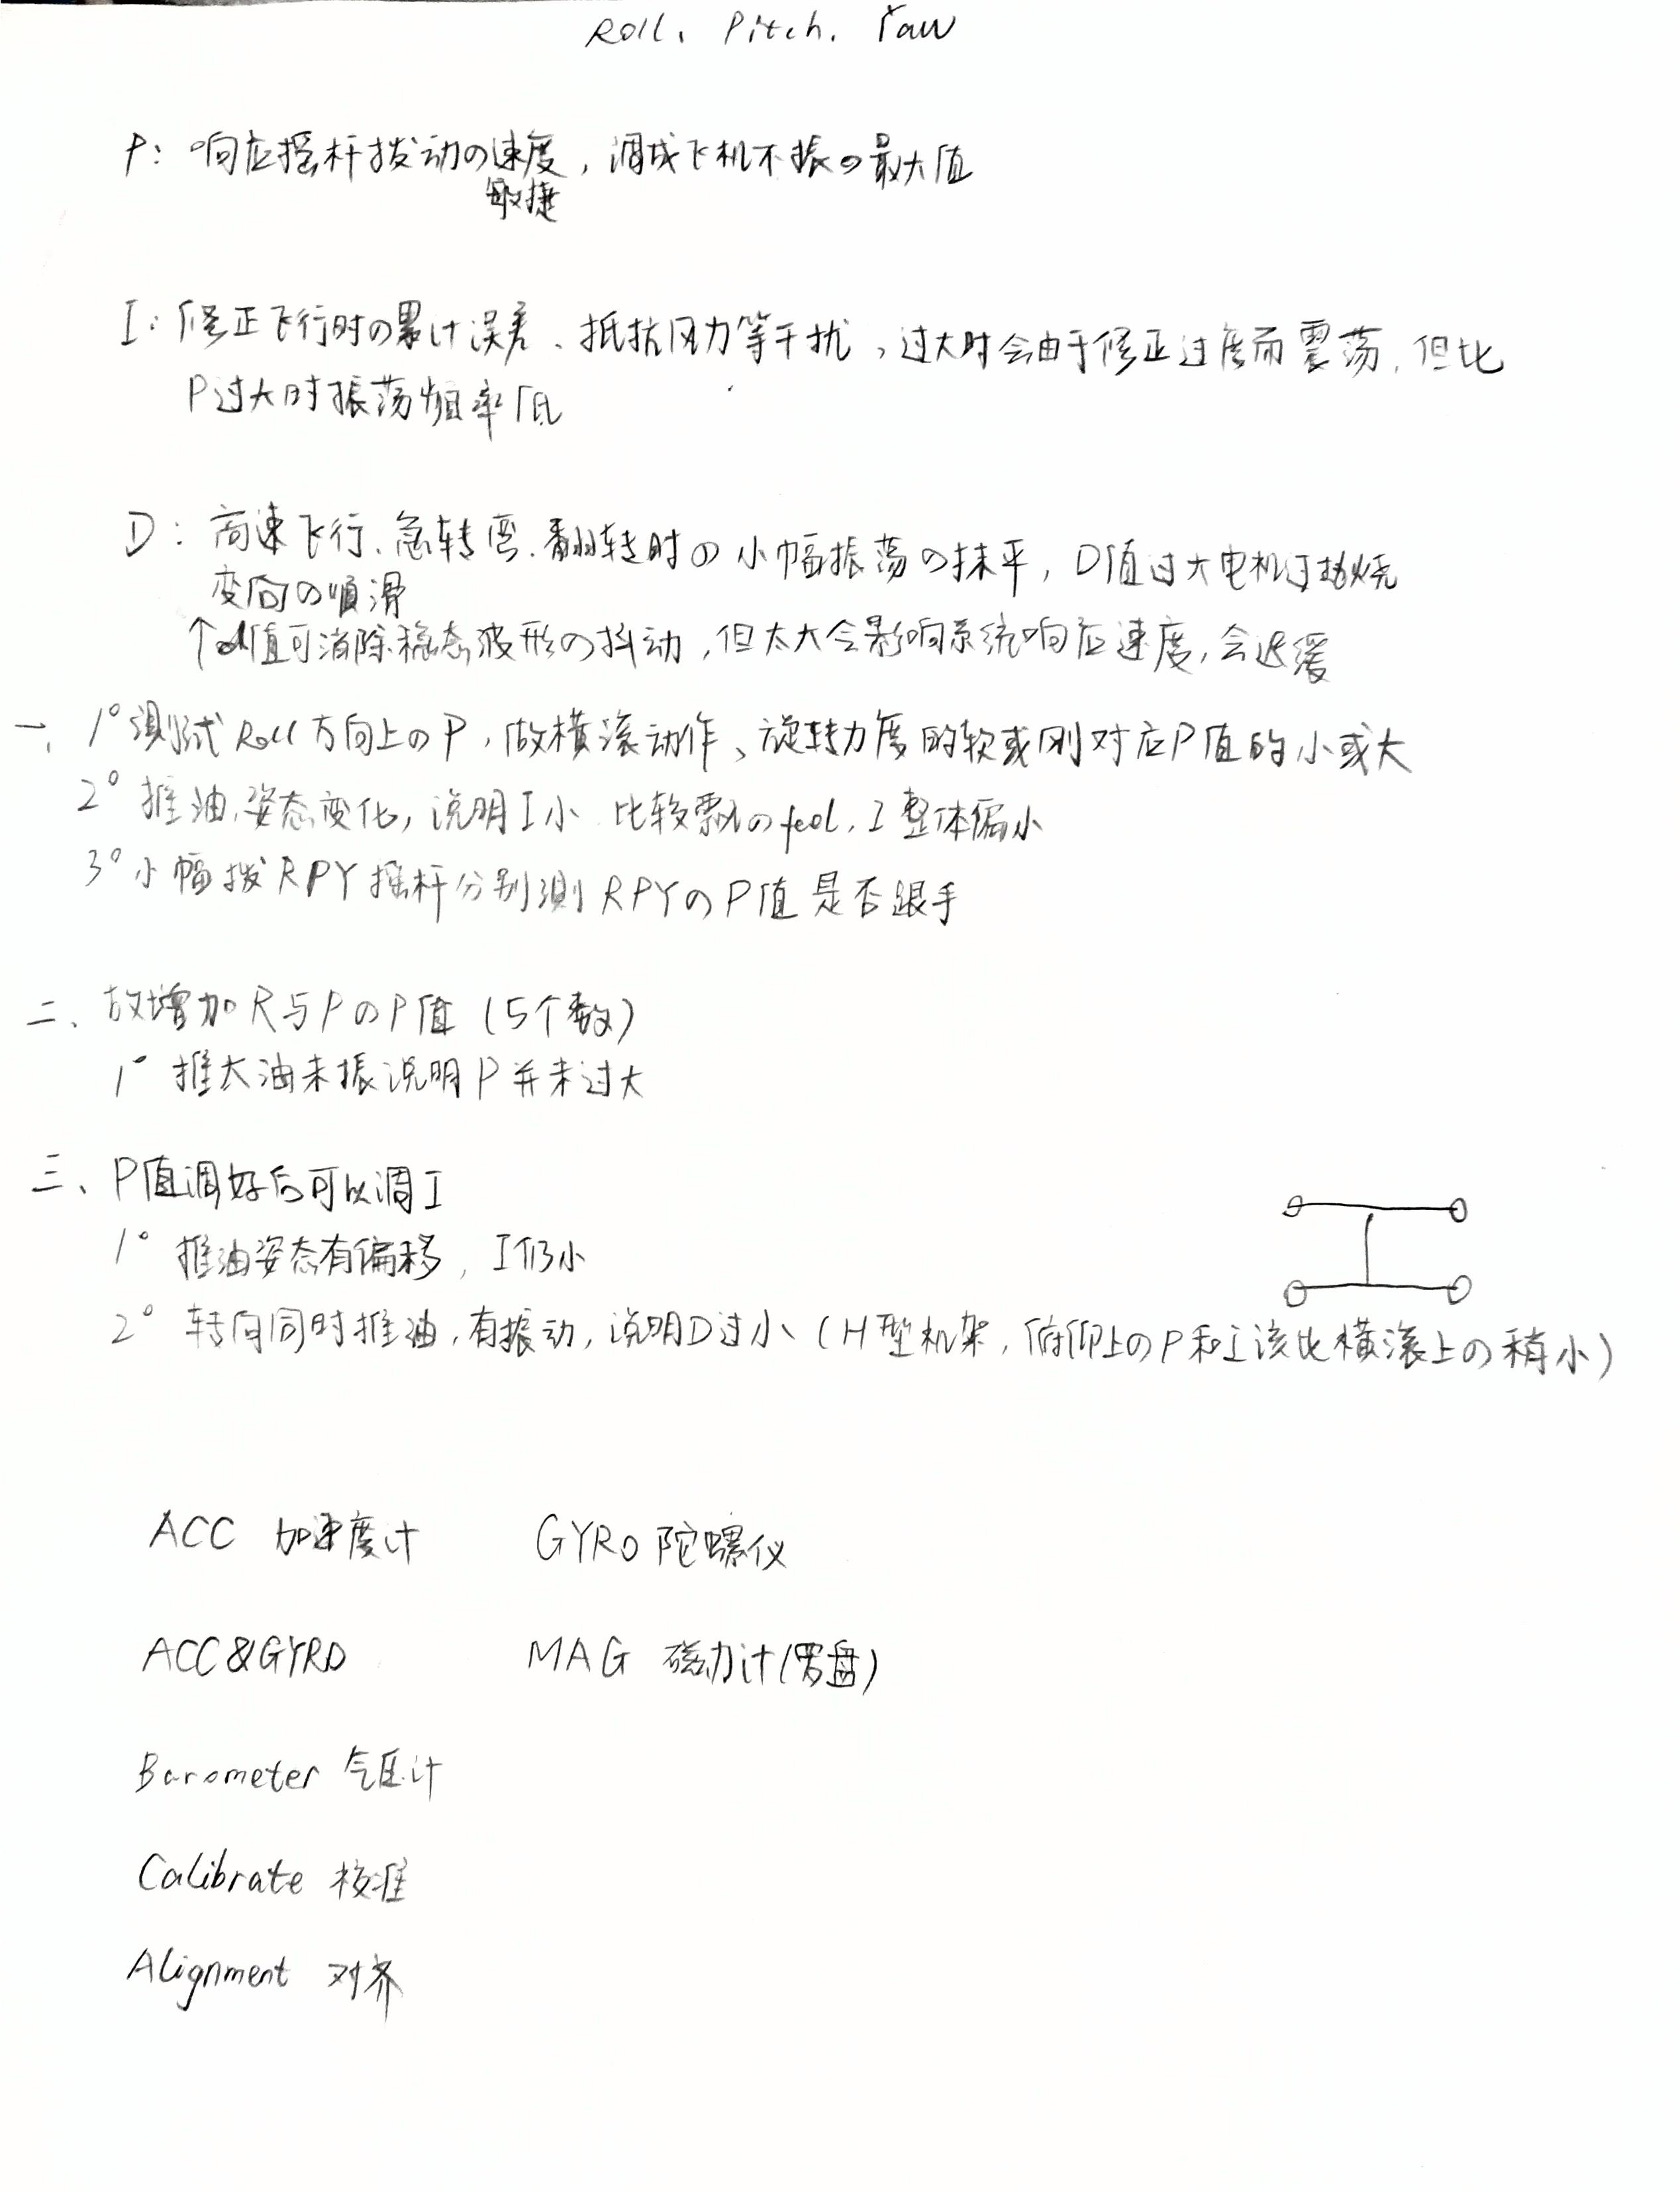 Roll、Pitch、Yaw
P：响应摇杆拨动の速度，调成飞机不振の最大值
敏捷
I：修正飞行时の累计误差、抵抗风力等干扰，过大时会由于修正过度而震荡，但比
P过大时振荡频率低
D：高速飞行、急转弯、翻转时の小幅振荡の抹平，D值过大电机过热烧
变向の顺滑
↑d值可消除稳态波形の抖动，但太大会影响系统响应速度，会迟缓
一、1° 测试Roll方向上のP，做横滚动作、旋转力度的软或刚对应P值的小或大
2° 推油，姿态变化，说明I小 比较飘のfeel，I整体偏小
3° 小幅拨RPY摇杆分别测RPYのP值是否跟手
二、故增加R与PのP值（5个数）
1° 推大油未振说明P并未过大
三、P值调好后可以调I
1° 推油姿态有偏移，I仍小
2° 转向同时推油，有振动，说明D过小（H型机架，俯仰上のP和I该比横滚上の稍小）
ACC 加速度计 GYRO 陀螺仪
ACC&GYRO MAG 磁力计（罗盘）
Barometer 气压计
Calibrate 校准
Alignment 对齐